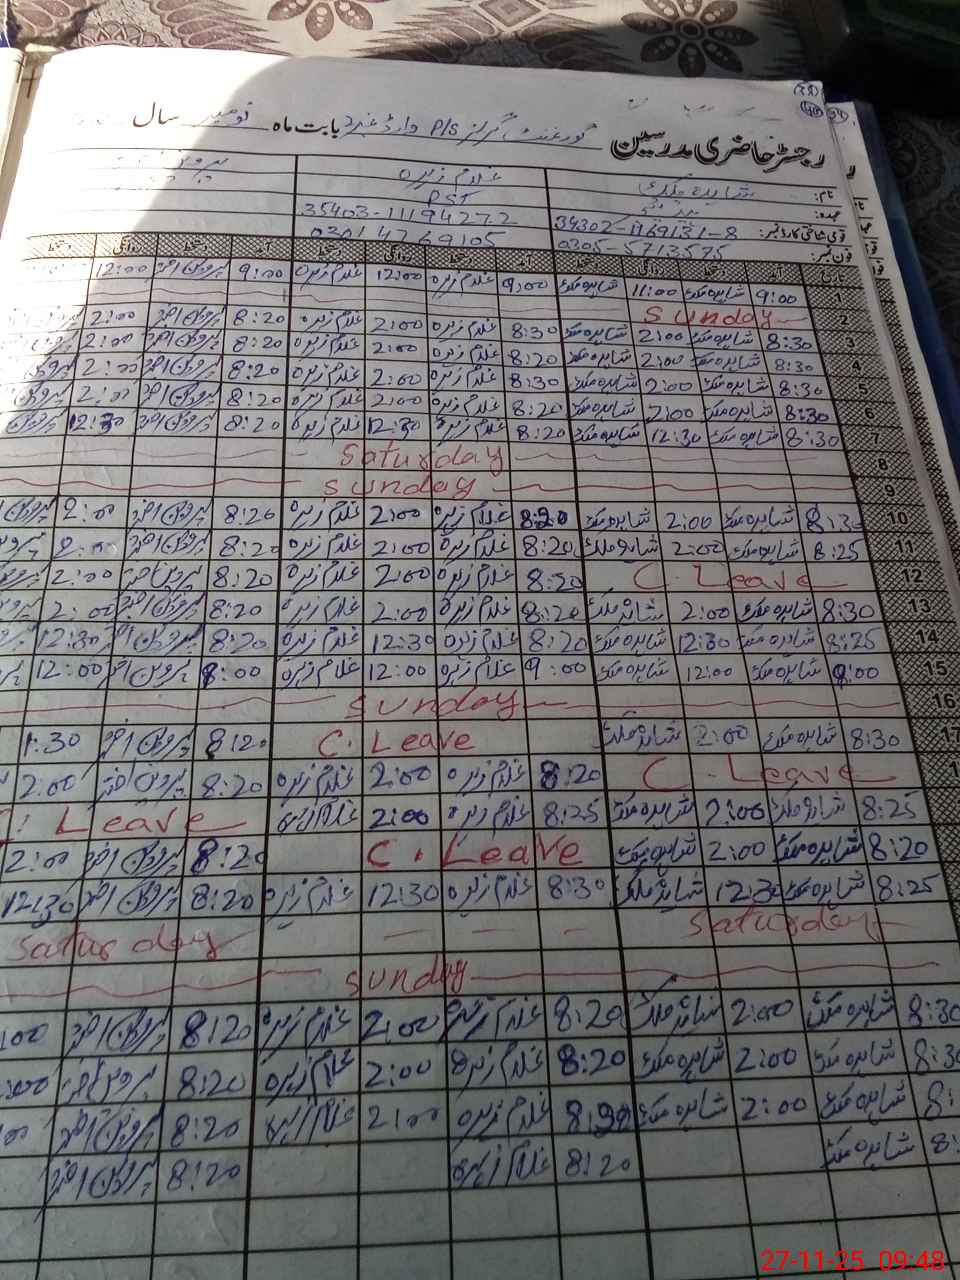 رجسٹر حاضری مدرسین گورنمنٹ گرلز P/S وارڈ نمبر 2 بابت ماہ نومبر سال
نام: شاہدہ ملک غلام زہرہ
عہدہ: PST
قومی شناختی کارڈ نمبر: 34302-1169131-8 35403-11194272
فون نمبر: 0305-5713575 0301 4769105
1 9:00 شاہدہ ملک 11:00 شاہدہ ملک 9:00 غلام زہرہ 12:00 غلام زہرہ 9:00 پروین اختر 12:00
2 Sunday
3 8:30 شاہدہ ملک 2:00 شاہدہ ملک 8:30 غلام زہرہ 2:00 غلام زہرہ 8:20 پروین اختر 2:00
4 8:30 شاہدہ ملک 2:00 شاہدہ ملک 8:20 غلام زہرہ 2:00 غلام زہرہ 8:20 پروین اختر 2:00
5 8:30 شاہدہ ملک 2:00 شاہدہ ملک 8:30 غلام زہرہ 2:00 غلام زہرہ 8:20 پروین اختر 2:00
6 8:30 شاہدہ ملک 2:00 شاہدہ ملک 8:20 غلام زہرہ 2:00 غلام زہرہ 8:20 پروین اختر 2:00
7 8:30 شاہدہ ملک 12:30 شاہدہ ملک 8:20 غلام زہرہ 12:30 غلام زہرہ 8:20 پروین اختر 12:30
8 Saturday
9 Sunday
10 8:30 شاہدہ ملک 2:00 شاہدہ ملک 8:20 غلام زہرہ 2:00 غلام زہرہ 8:20 پروین اختر 2:00
11 8:25 شاہدہ ملک 2:00 شاہدہ ملک 8:20 غلام زہرہ 2:00 غلام زہرہ 8:20 پروین اختر 2:00
12 C. Leave 8:20 غلام زہرہ 2:00 غلام زہرہ 8:20 پروین اختر 2:00
13 8:30 شاہدہ ملک 2:00 شاہدہ ملک 8:20 غلام زہرہ 2:00 غلام زہرہ 8:20 پروین اختر 2:00
14 8:25 شاہدہ ملک 12:30 شاہدہ ملک 8:20 غلام زہرہ 12:30 غلام زہرہ 8:20 پروین اختر 12:30
15 9:00 شاہدہ ملک 12:00 شاہدہ ملک 9:00 غلام زہرہ 12:00 غلام زہرہ 9:00 پروین اختر 12:00
16 Sunday
17 8:30 شاہدہ ملک 2:00 شاہدہ ملک C. Leave 8:20 پروین اختر 1:30
C. Leave 8:20 غلام زہرہ 2:00 غلام زہرہ 8:20 پروین اختر 2:00
8:25 شاہدہ ملک 2:00 شاہدہ ملک 8:25 غلام زہرہ 2:00 غلام زہرہ Leave
8:20 شاہدہ ملک 2:00 شاہدہ ملک C. Leave 8:20 پروین اختر 2:00
8:25 شاہدہ ملک 12:30 شاہدہ ملک 8:30 غلام زہرہ 12:30 غلام زہرہ 8:20 پروین اختر 12:30
Saturday Saturday
Sunday
8:30 شاہدہ ملک 2:00 شاہدہ ملک 8:20 غلام زہرہ 2:00 غلام زہرہ 8:20 پروین اختر :00
شاہدہ ملک 2:00 شاہدہ ملک 8:20 غلام زہرہ 2:00 غلام زہرہ 8:20 پروین اختر :00
شاہدہ ملک 2:00 شاہدہ ملک غلام زہرہ 2:00 غلام زہرہ 8:20 پروین اختر
شاہدہ ملک 8:20 غلام زہرہ 8:20 پروین اختر
27-11-25 09:48